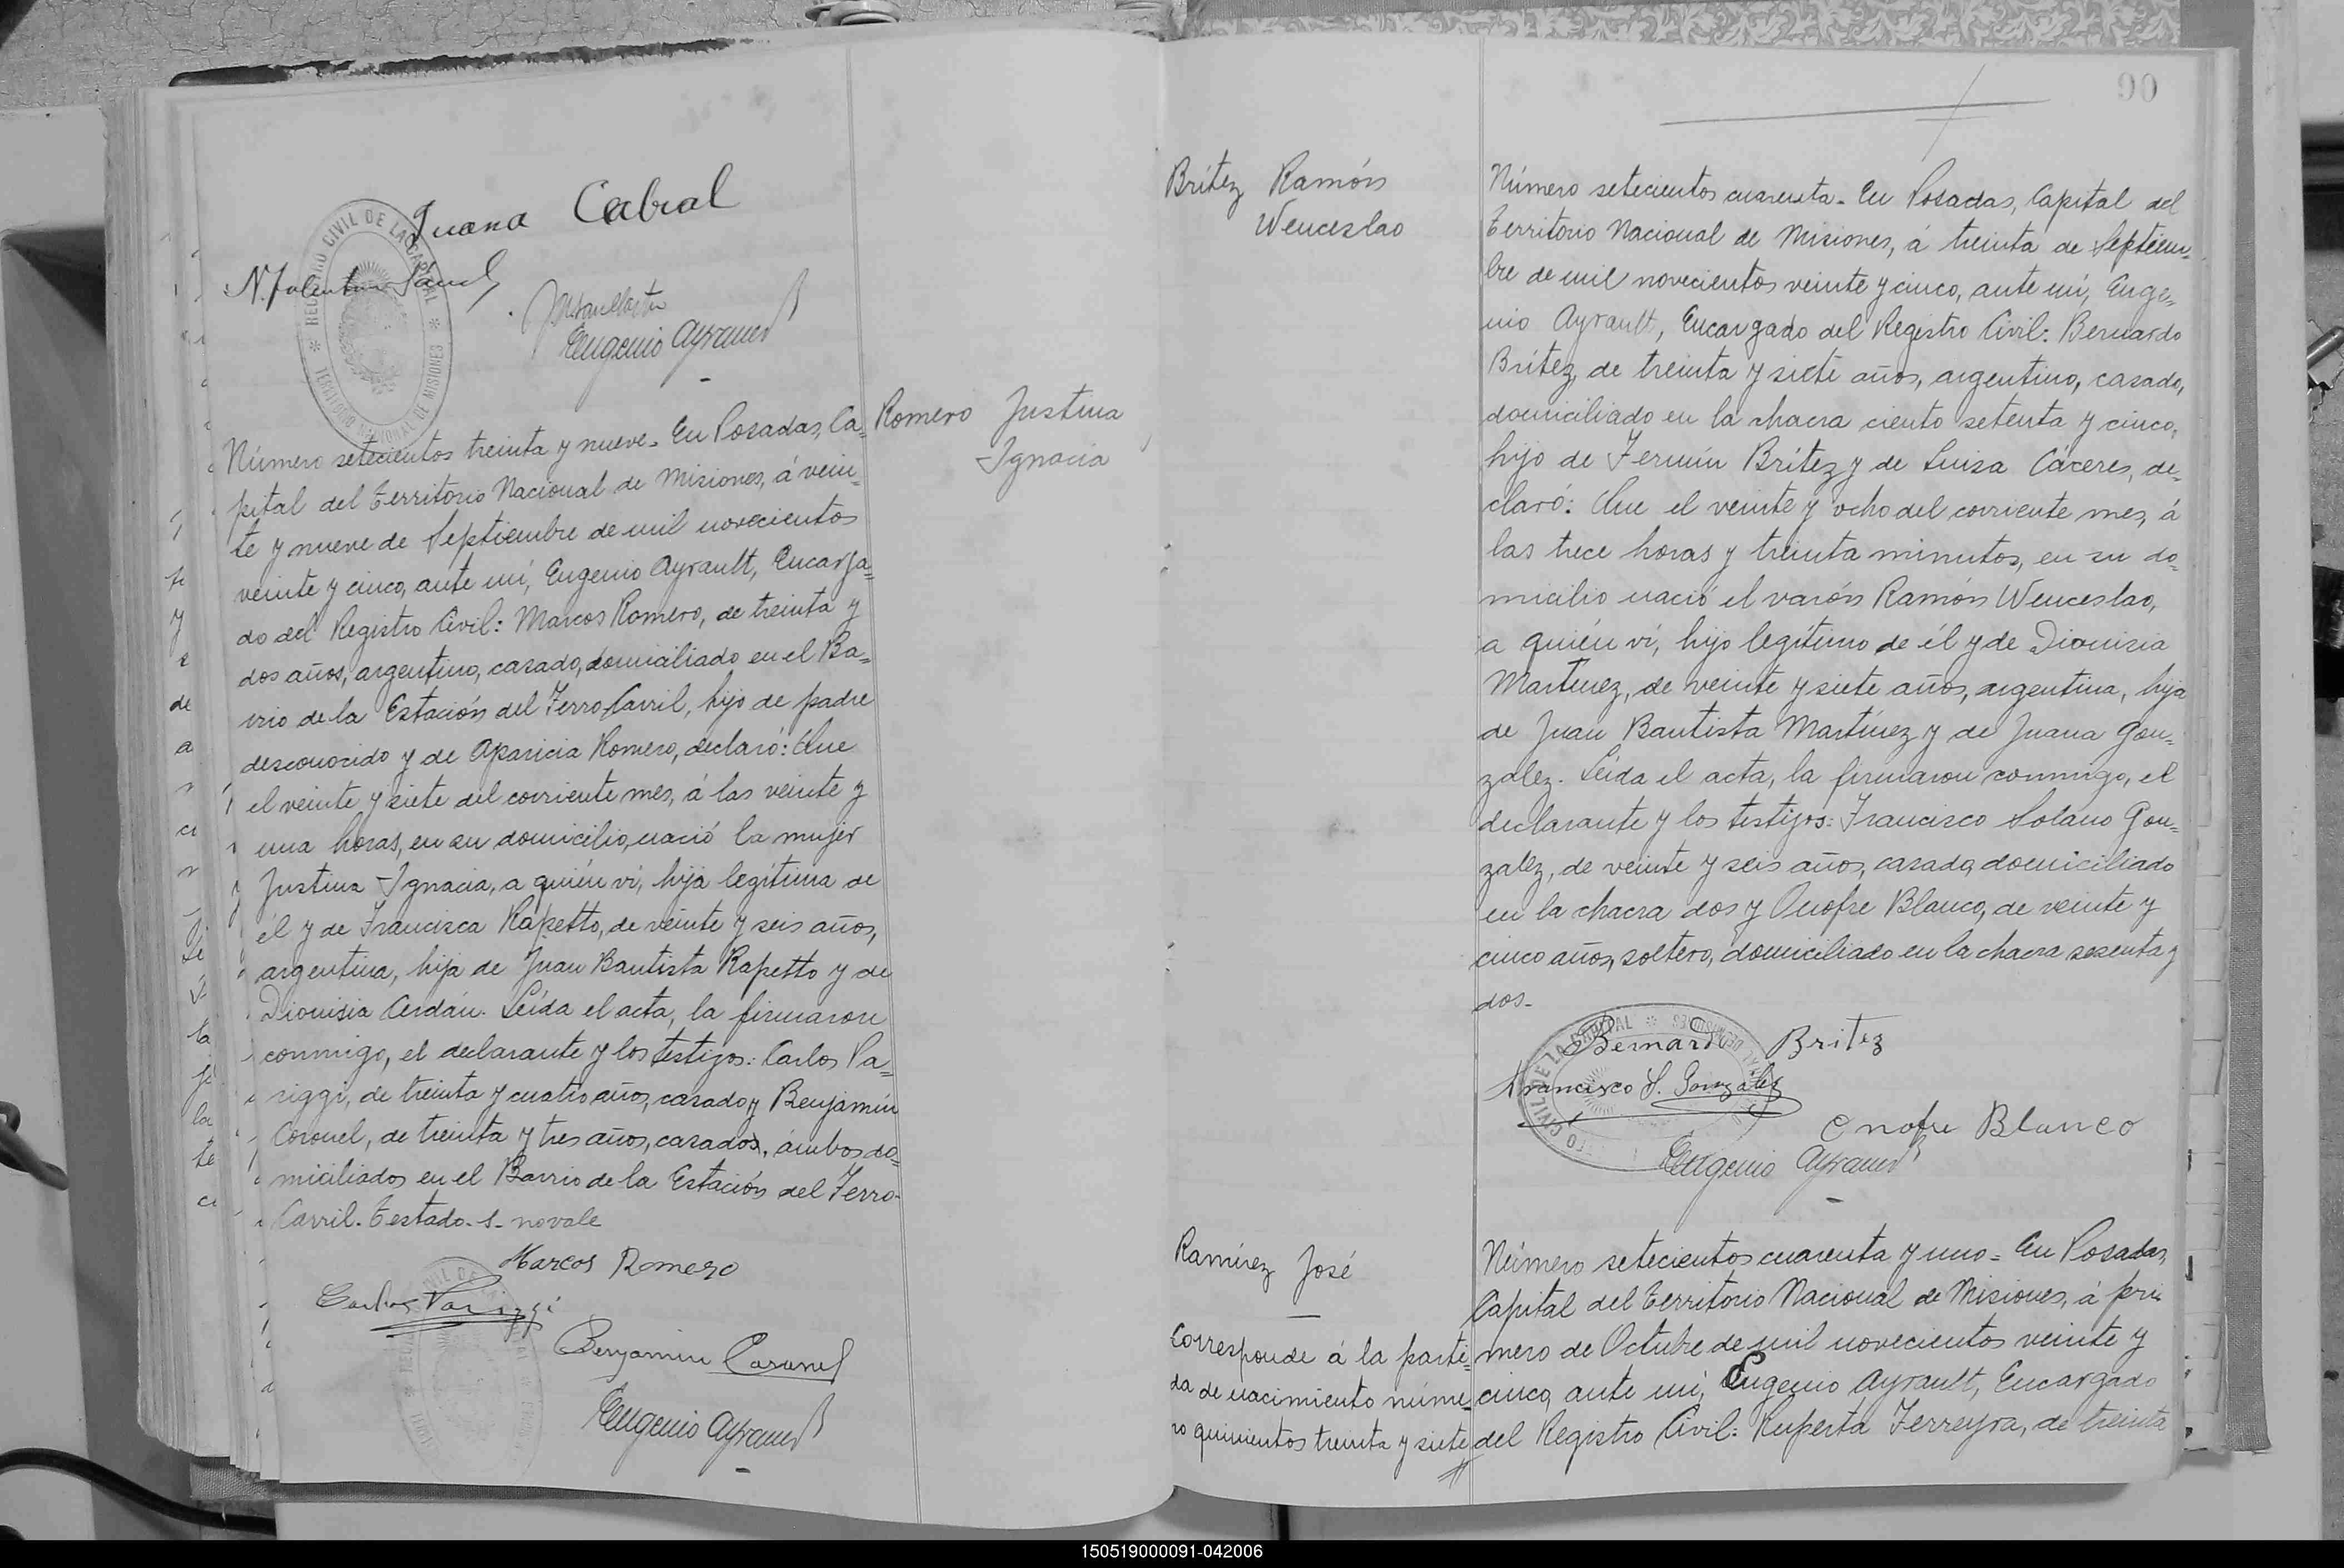 Juana Cabral
REGISTRO CIVIL DE LA CAPITAL * TERRITORIO NACIONAL DE MISIONES *
Eugenio Ayrault
Romero Justina
Ignacia
Número setecientos treinta y nueve. En Posadas, Ca=
pital del Territorio Nacional de Misiones, á vein=
te y nueve de Septiembre de mil novecientos
veinte y cinco, ante mí, Eugenio Ayrault, Encarga=
do del Registro Civil: Marcos Romero, de treinta y
dos años, argentino, casado, domiciliado en el Ba=
rrio de la Estación del Ferro Carril, hijo de padre
desconocido y de Aparicia Romero, declaró: Que
el veinte y siete del corriente mes, á las veinte y
una horas, en su domicilio, nació la mujer
Justina Ignacia, a quién ví, hija legítima de
él y de Francisca Rapetto, de veinte y seis años,
argentina, hija de Juan Bautista Rapetto y de
Dionisia Cerdán. Leída el acta, la firmaron
conmigo, el declarante y los testigos: Carlos Pa=
riggi, de treinta y cuatro años, casado y Benjamín
Coronel, de treinta y tres años, casados, ámbos do=
miciliados en el Barrio de la Estación del Ferro-
Carril. Testado-s-no vale
Marcos Romero
Carlos Pariggi
Benjamin Coronel
Eugenio Ayrault
90
Brítez Ramón
Wenceslao
Número setecientos cuarenta. En Posadas, Capital del
Territorio Nacional de Misiones, á treinta de Septiem=
bre de mil novecientos veinte y cinco, ante mí, Euge=
nio Ayrault, Encargado del Registro Civil: Bernardo
Brítez, de treinta y siete años, argentino, casado,
domiciliado en la chacra ciento setenta y cinco,
hijo de Fermín Brítez y de Luisa Cáceres, de=
claró: Que el veinte y ocho del corriente mes, á
las trece horas y treinta minutos, en su do=
micilio nació el varón Ramón Wenceslao,
a quién ví, hijo legítimo de él y de Dionisia
Martínez, de veinte y siete años, argentina, hija
de Juan Bautista Martínez y de Juana Gon=
zalez. Leída el acta, la firmaron conmigo, el
declarante y los testigos: Francisco Solano Gon=
zalez, de veinte y seis años, casado, domiciliado
en la chacra dos y Onofre Blanco, de veinte y
cinco años, soltero, domiciliado en la chacra sesenta y
dos.
Bernardo Britez
Francisco S. González
Onofre Blanco
Eugenio Ayrault
Ramírez José
Corresponde á la parti=
da de nacimiento núme=
ro quinientos treinta y siete
Número setecientos cuarenta y uno = En Posadas,
Capital del Territorio Nacional de Misiones, á pri=
mero de Octubre de mil novecientos veinte y
cinco, ante mí, Eugenio Ayrault, Encargado
del Registro Civil: Ruperta Ferreyra, de treinta
150519000091-042006